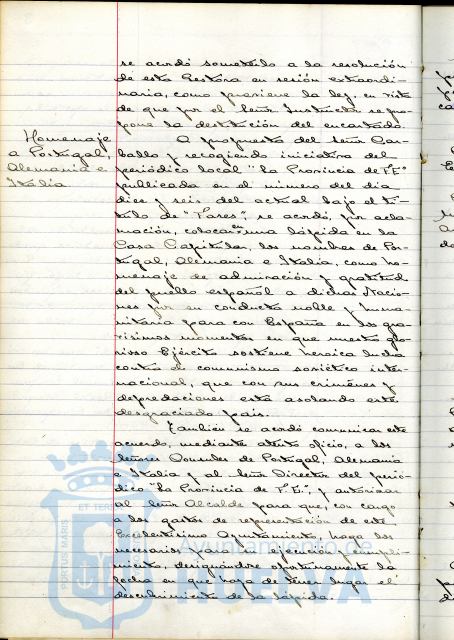 se acordó someterlo a la resolución
de esta Gestora en sesión extraordi-
naria, como previene la ley, en vista
de que por el Señor Instructor se pro-
pone la destitución del encartado.
Homenaje
a Portugal,
Alemania e
Italia
A propuesta del Señor Car-
ballo y recogiendo iniciativa del
periódico local "La Provincia de F.E."
publicada en el número del dia
diez y seis del actual bajo el tí-
tulo de "Fases", se acordó, por acla-
mación, colocar en una lápida en la
Casa Capitular, los nombres de Por-
tugal, Alemania e Italia, como ho-
menaje de admiración y gratitud
del pueblo español a dichas Nacio-
nes por su conducta noble y huma-
nitaria para con España en los gra-
vísimos momentos en que nuestro glo-
rioso Ejército sostiene heroica lucha
contra el comunismo soviético inter-
nacional, que con sus crímenes y
depredaciones está asolando este
desgraciado país.
También se acordó comunicar este
acuerdo, mediante atento oficio, a los
Señores Consules de Portugal, Alemania
e Italia y al Señor Director del perió-
dico "La Provincia de F.E.", y autorizar
al Señor Alcalde para que, con cargo
a los gastos de representación de este
Excelentísimo Ayuntamiento, haga los
necesarios para la ejecución y cumpli-
miento, designándose oportunamente la
fecha en que haya de tener lugar el
descubrimiento de la lápida.
PORTUS MARIS
ET TERRE
Ayuntamiento de
HUELVA